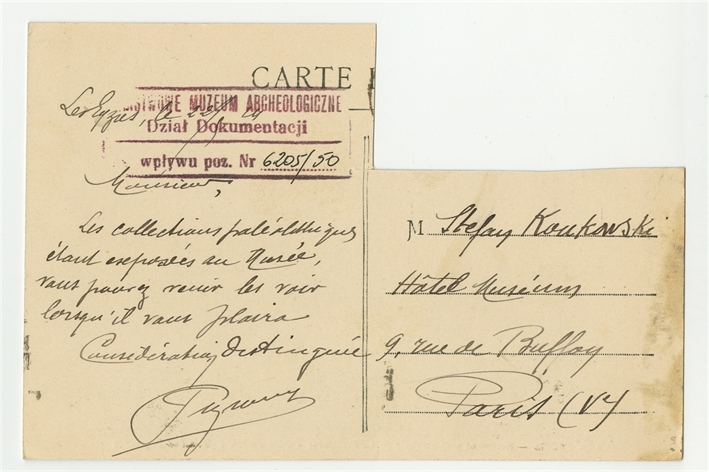 CARTE
Les Eyzies, le 22
STWOWE MUZEUM ARCHEOLOGICZNE
Dział Dokumentacji
wpływu poz. Nr 6205/50
Monsieur,
Les collections paléolithiques
étant exposées au Musée,
vous pouvez venir les voir
lorsqu'il vous plaira
Considération distinguée
M Stefan Krukowski
Hôtel Muséum
9, rue de Buffon
Paris (Ve)